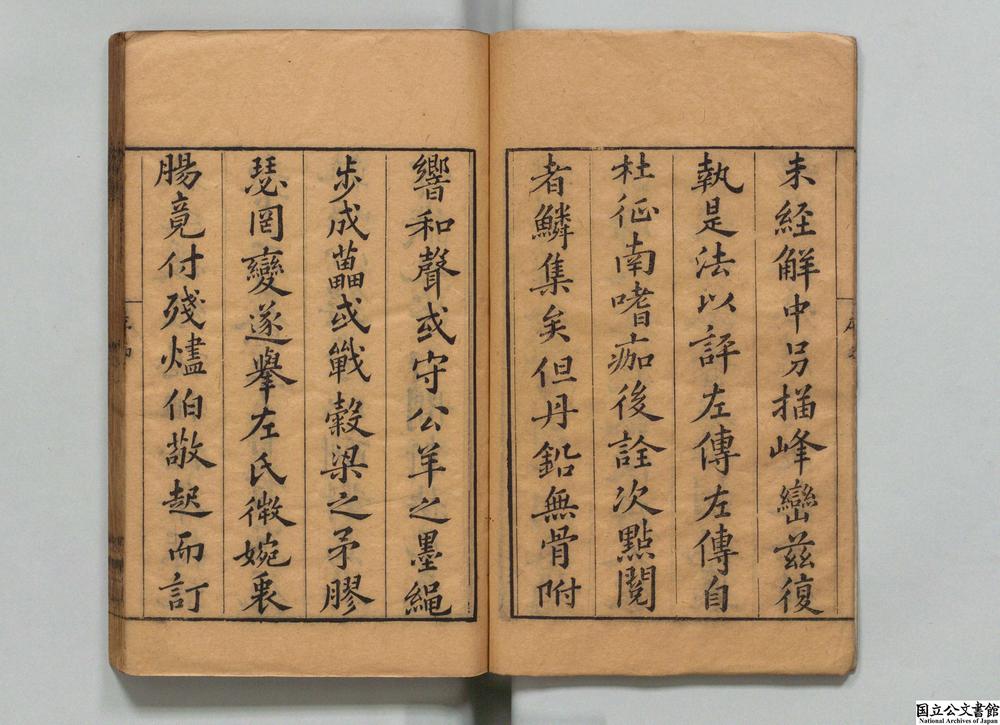 未經解中另描峰巒茲復
執是法以評左傳左傳自
杜征南嗜痂後詮次點閱
者鱗集矣但丹鉛無骨附
響和聲或守公羊之墨繩
步成菑或戰穀梁之矛膠
瑟罔變遂舉左氏微婉衷
腸竟付殘燼伯敬起而訂
国立公文書館
National Archives of Japan